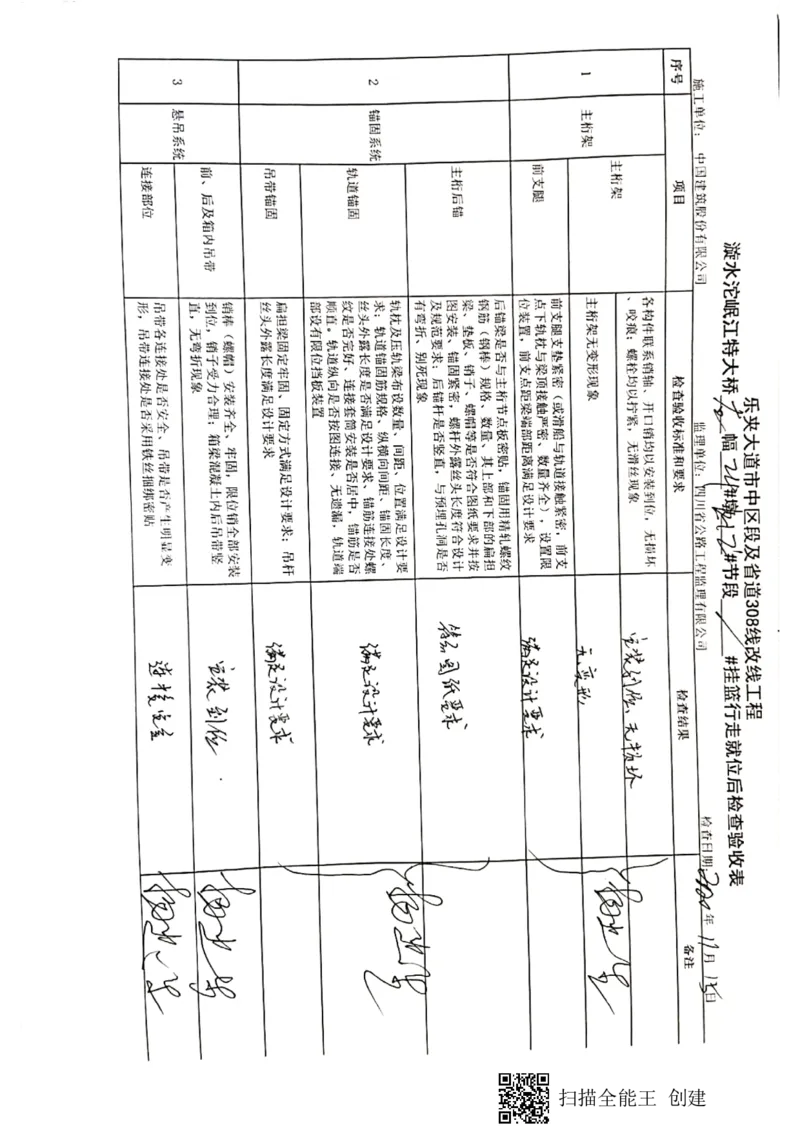 乐夹大道市中区段及省道308线改线工程
漩水沱岷江特大桥 幅 #墩 #节段 #挂篮行走就位后检查验收表
施工单位：中国建筑股份有限公司 监理单位：四川省公路工程监理有限公司 检查日期 年 11月 日
序号 项目 检查验收标准和要求 检查结果 备注
1 主桁架 主桁架
各构件联系销轴、开口销均以安装到位，无损坏
、咬痕；螺栓均以拧紧，无滑丝现象
安装到位、无损坏
主桁架无变形现象
无变形
前支腿
前支腿支垫紧密（或滑船与轨道接触紧密，前支
点下轨枕与梁顶接触严密、数量齐全），设置限
位装置，前支点距梁端部距离满足设计要求
满足设计要求
2 锚固系统 主桁后锚
后锚梁是否与主桁节点板密贴，锚固用精轧螺纹
钢筋（钢棒）规格、数量、其上部和下部的扁担
梁、垫板、销子、螺帽等是否符合图纸要求并按
图安装、锚固紧密，螺杆外露丝头长度符合设计
及规范要求；后锚杆是否竖直，与预埋孔洞是否
有弯折、别死现象
符合图纸要求
轨道锚固
轨枕及压轨梁布设数量、间距、位置满足设计要
求；轨道锚固筋规格、纵横向间距、锚固长度、
丝头外露长度是否满足设计要求、锚筋连接处螺
纹是否完好、连接套筒安装是否居中，锚筋是否
顺直，轨道纵向是否按图连接、无遗漏，轨道端
部设有限位挡板装置
满足设计要求
吊带锚固
扁担梁固定牢固、固定方式满足设计要求；吊杆
丝头外露长度满足设计要求
满足设计要求
3 悬吊系统 前、后及箱内吊带
销棒（螺帽）安装齐全、牢固，限位销全部安装
到位，销子受力合理；箱梁混凝土内后吊带竖
直，无弯折现象
安装到位
连接部位
吊带各连接处是否安全、吊带是否产生明显变
形，吊带连接处是否采用铁丝捆绑密贴
连接安全
扫描全能王 创建